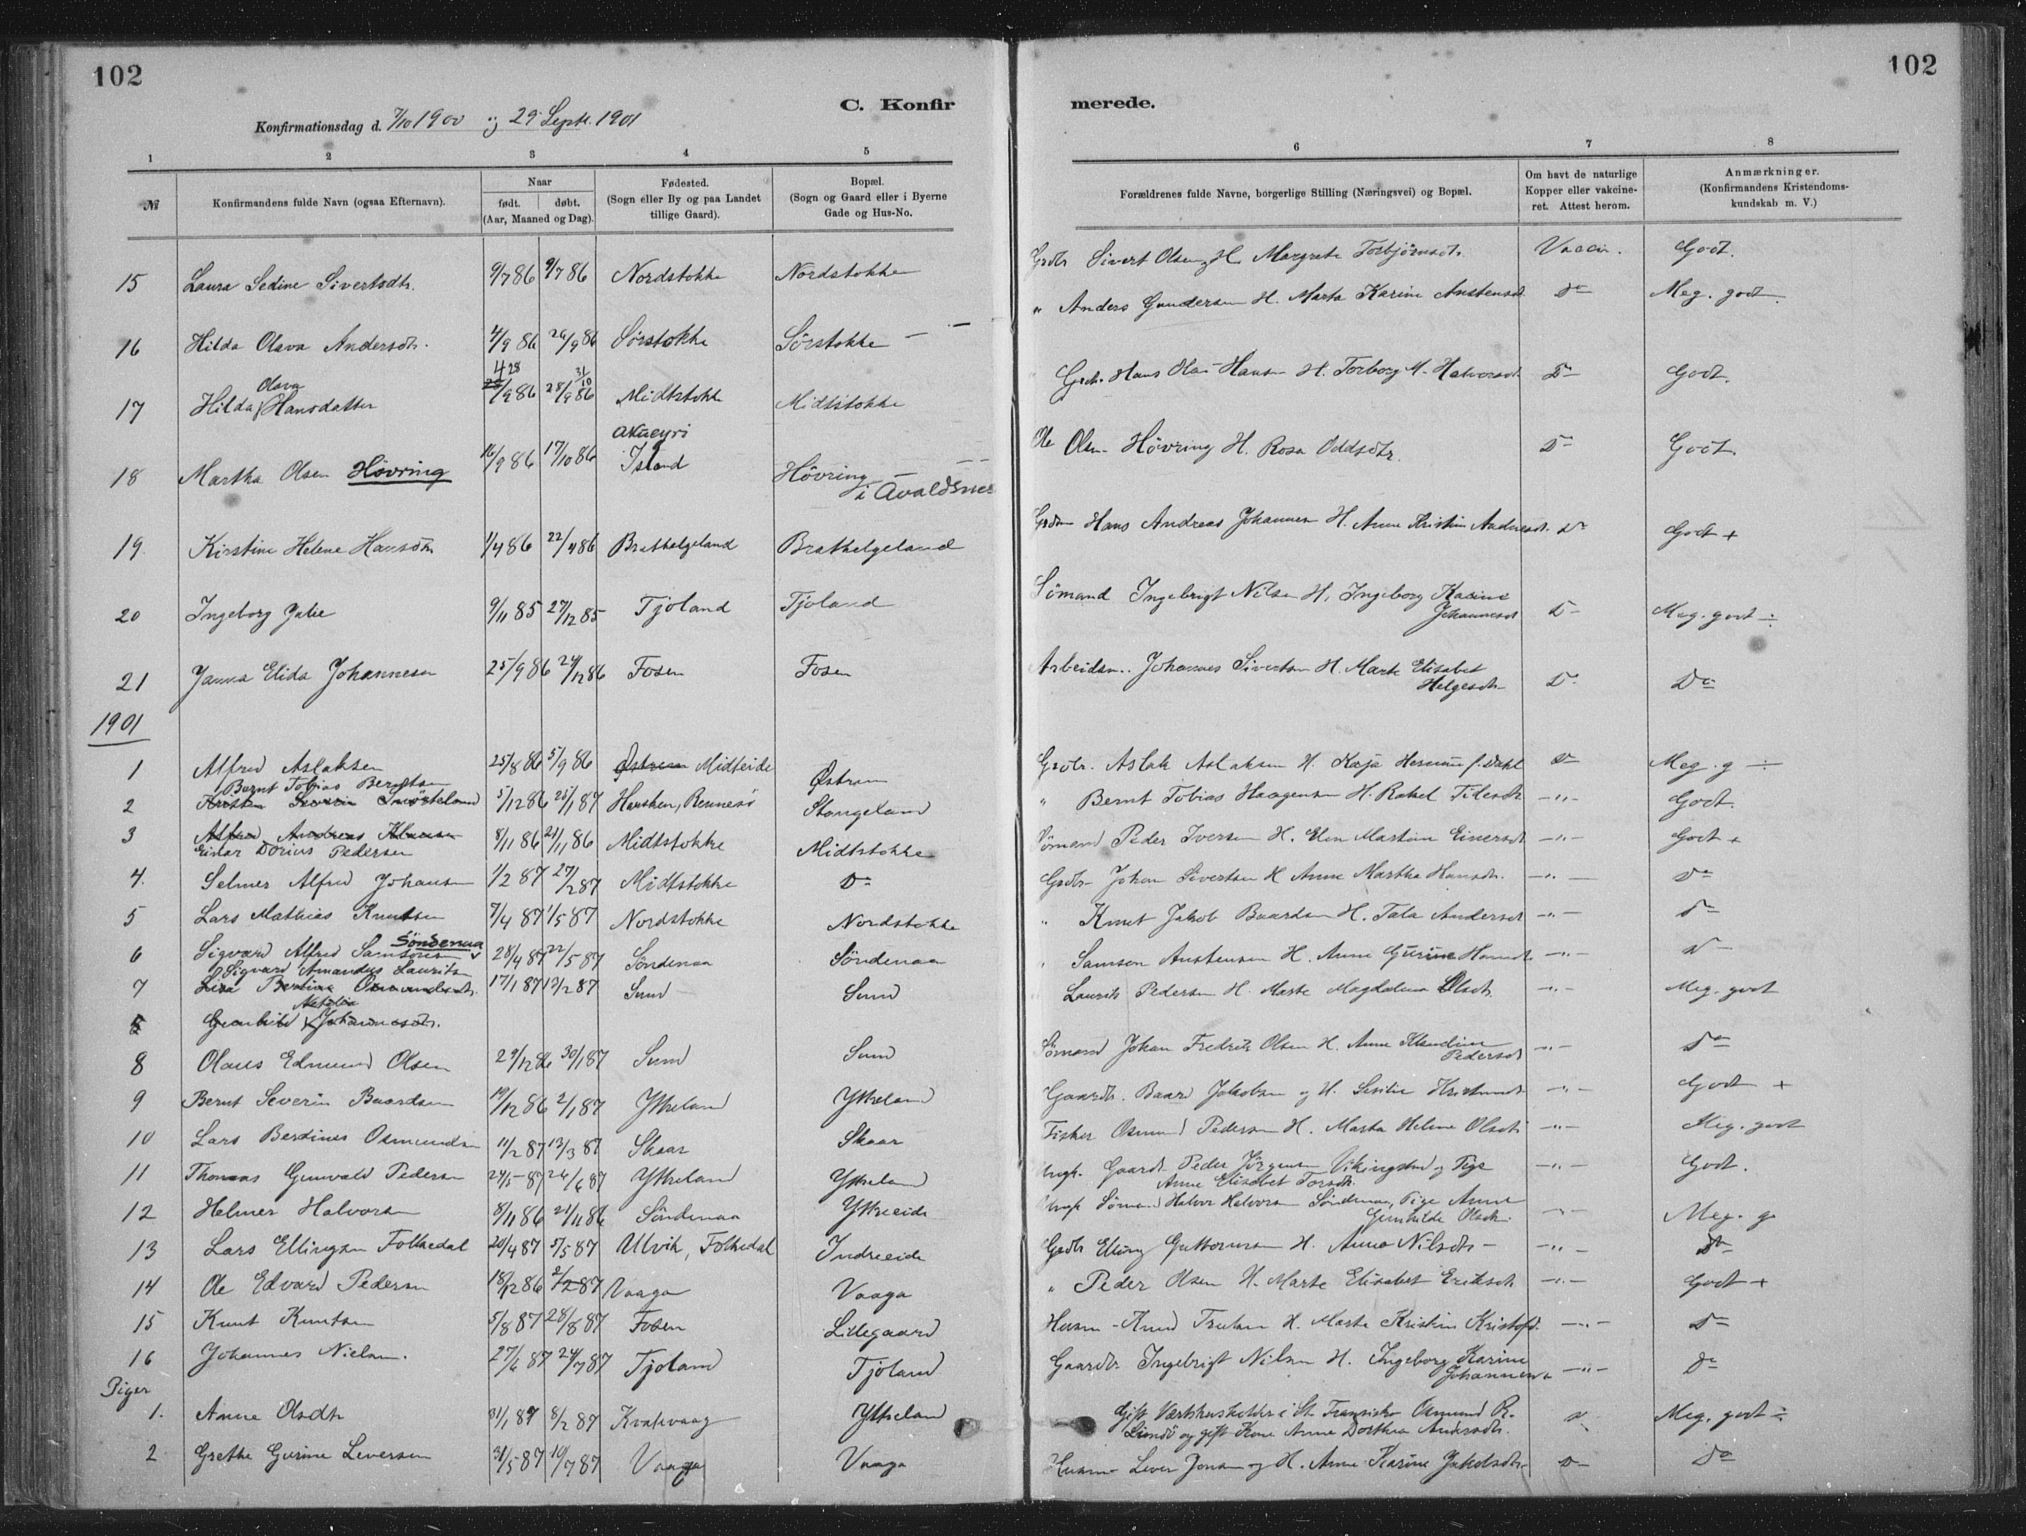 102
102
C. Konfir
merede.
Konfirmationsdag d. 7/10 1900 og 29 Septr. 1901
1 2 3 4 5 6 7 8
№ Konfirmandens fulde Navn (ogsaa Efternavn).
Naar
født. døbt.
(Aar, Maaned og Dag).
Fødested.
(Sogn eller By og paa Landet
tillige Gaard).
Bopæl.
(Sogn og Gaard eller i Byerne
Gade og Hus-No.
Forældrenes fulde Navne, borgerlige Stilling (Næringsvei) og Bopæl.
Om havt de naturlige
Kopper eller vakcine-
ret. Attest herom.
Anmærkninger.
(Konfirmandens Kristendoms-
kundskab m. V.)
15 Laura Sedine Sivertsdtr. 9/7 86 9/7 86 Nordstokke Nordstokke Grdbr Sivert Olsen, H. Margrete Torbjörnsdtr. Vaccin. Godt.
16 Hilda Olava Andersdtr. 4/9 86 26/9 86 Sörstokke Sörstokke " Anders Gundersen H. Marta Karine Anstensdt. Do Meg. godt ÷
17 Hilda Olava Hansdatter 4 28 /9 86 31/10 28/9 86 Midtstokke Midtstokke Grdbr. Hans Olai Hansen H. Torborg M. Halvorsdt. Do Godt.
18 Martha Olsen Hövring 16/9 86 17/10 86 Akueyri Island Hövring i Avaldsnes Ole Olsen Hövring H. Rosa Oddsdtr. Do Godt.
19 Kirstine Helene Hansdtr 1/4 86 22/4 86 Brathelgeland Brathelgeland Hans Andreas Johannesen H. Anne Kristine Andersdt. Do Godt +
20 Ingeborg 9/11 85 27/12 85 Tjoland Tjoland Sömand Ingebrigt Nilsen H. Ingeborg Karine Johannesdt Do Meg. godt ÷
21 Janna Elida Johannesen 25/9 86 24/12 86 Fosen Fosen Arbeidsm. Johannes Sivertsen H. Marte Elisabet Helgesdtr Do Do
1901
1 Alfred Aslaksen 25/8 86 5/9 86 Østrem Midteide Østrem Grdbr. Aslak Aslaksen H. Kaja f. Dahl Do Meg. g ÷
2 Bernt Tobias Berntsen 5/12 86 25/1 87 Hausken, Rennesö Stangeland " Bernt Tobias Haagensen H. Rakel —"— Godt.
3 Alfred Andreas Klausen
Einar Dorius Pedersen 8/11 86 21/11 86 Midtstokke Midtstokke Sömand Peder Iversen H. Elen Martine Einersdt —"— Godt +
4. Selmer Alfred Johansen 1/2 87 27/2 87 Midtstokke Do Grdbr Johan Sivertsen H Anne Martha Hansdtr. —"— Do
5 Lars Mathias Knutsen 7/4 87 1/5 87 Nordstokke Nordstokke " Knut Jakob Baardsen H. Tala Andersdt —"— Do
6 Sigvard Alfred Samsonsen Söndenaa 28/4 87 22/5 87 Söndenaa Söndenaa " Samson Anstensen H. Anne Gurine —"— Do
7 Sigvard Amandus Lauritsen 17/1 87 13/2 87 Sund Sund Laurits Pedersen H. Marte Magdalena Olsdtr. —"— Meg. godt
Johannesdtr.
8 Olaus Edmund Olsen 29/12 86 30/1 87 Sund Sund Sömand Johan Fredrik Olsen H. Anne Klandine Pedersdt —"— Do
9 Bernt Severin Baardsen 19/12 86 2/1 87 Ytreland Ytreland Gaardb. Baard Jakobsen og H. —"— Godt +
10 Lars Berdines Osmundsen 11/2 87 13/3 87 Skaar Skaar Fisker Osmund Pedersen H. Marta Helene Olsdt —"— Meg. godt
11 Thomas Gunvald Pedersen 24/5 87 26/6 87 Ytreland Ytreland Ungk. Gaardb. Peder Jörgensen Vikingstad og Pige Anne Elisabet Torsdt. —"— Godt.
12 Helmer Halvorsen 8/11 86 21/11 86 Söndenaa Ytreeide Ungk Sömand Halvor Halvorsen Söndenaa, Pige Anne Gunhilde Olsdt. —"— Meg. g
13 Lars Ellingsen Folkedal 20/4 87 5/5 87 Ullvik, Folkedal Indreeide Grdbr Elling Guttormsen H. Anna Nilsdtr —"— Do
14 Ole Edvard Pedersen 18/12 86 2/2 87 Vaaga Vaaga " Peder Olsen H. Marte Elisabet Eriksdt. —"— Godt +
15 Knut Knutsen 5/8 87 28/8 87 Fosen Lillegaard Husm Knud H. Marte Kristine Kristofd. —"— Do
16 Johannes Nielsen. 27/6 87 24/7 87 Tjoland Tjoland Gaardbr. Ingebrigt Nilsen H. Ingeborg Karine Johannesen —"— Do
Piger
1. Anne Olsdtr 31/1 87 8/2 87 Kvalevaag Ytreland Gift Vertshusholder i St. Fransisko Osmund R. og gift Kone Anne Dorthea Andersdtr. Do Meg. godt ÷
2 Grethe Gurine Leversen 31/5 87 10/7 87 Vaaga Vaaga Husm Lever Jonsen og H. Anne Karine Jakobsdtr Do Do